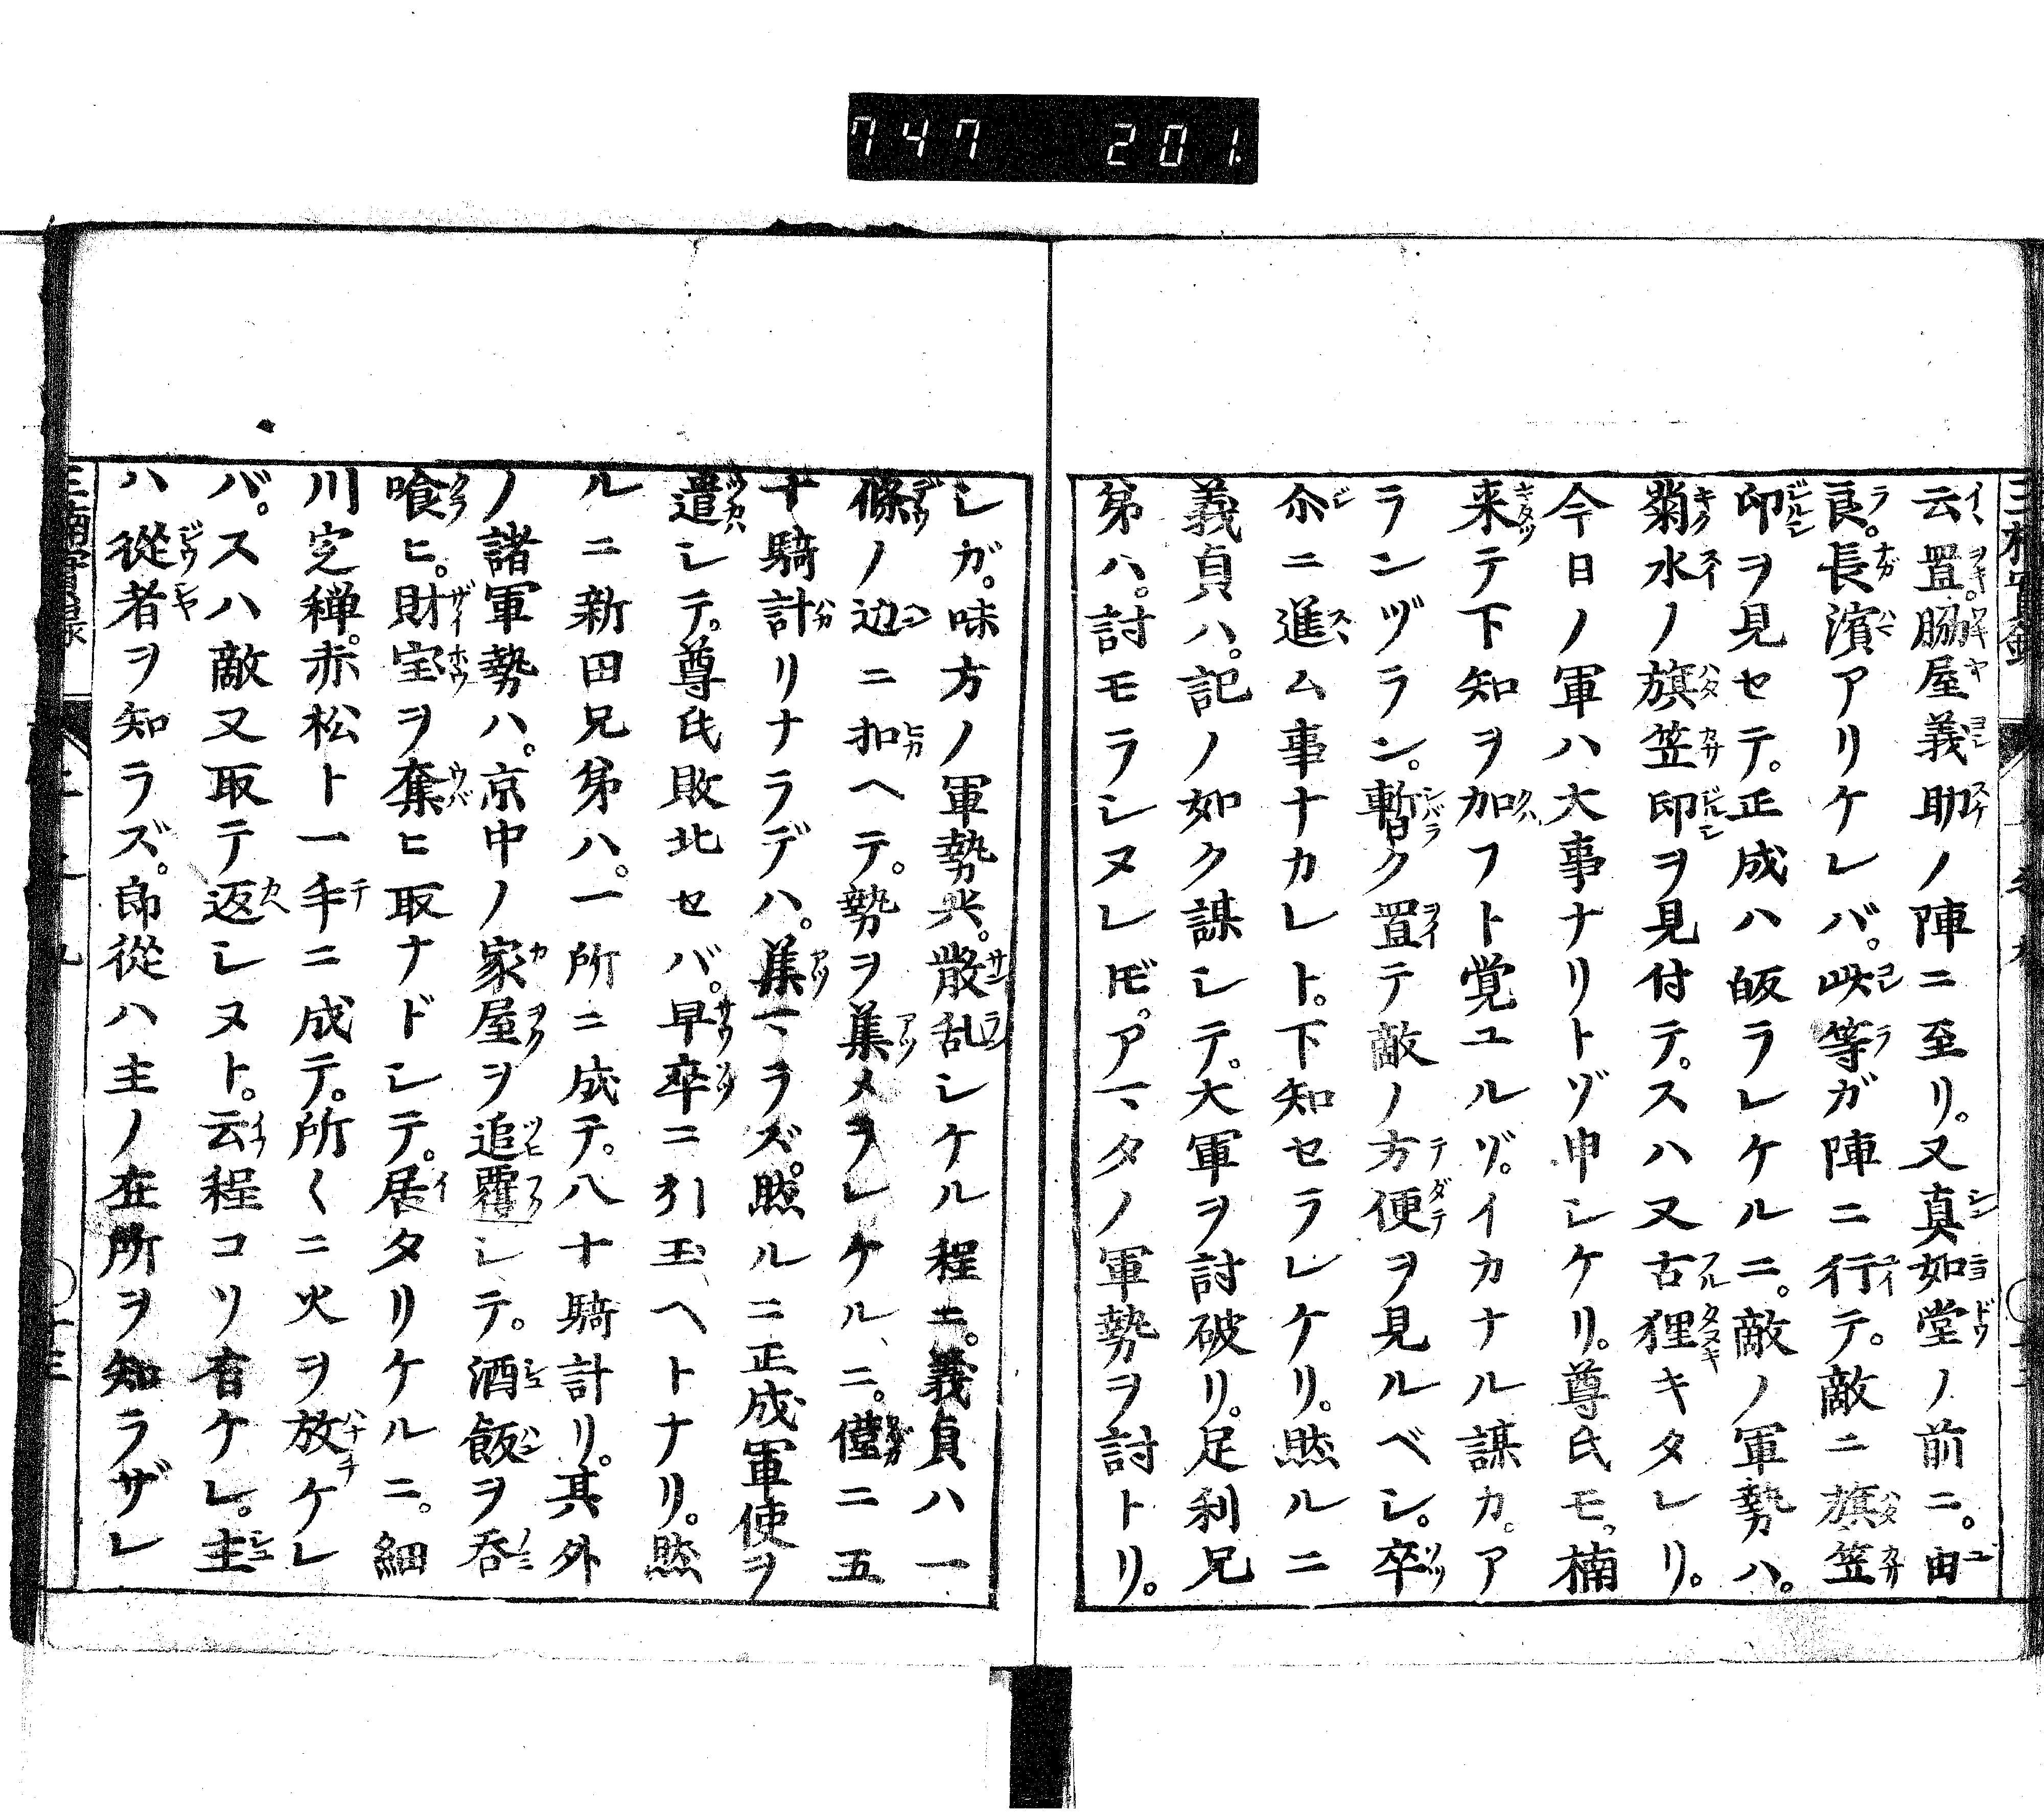 747 201.
云置。脇屋義助ノ陣ニ至リ。又真如堂ノ前ニ。由
良。長濱アリケレバ。此等ガ陣ニ行テ。敵ニ旗笠
印ヲ見セテ。正成ハ皈ラレケルニ。敵ノ軍勢ハ。
菊水ノ旗笠印ヲ見付テ。スハ又古狸キタレリ。
今日ノ軍ハ大事ナリトゾ申シケリ。尊氏モ。楠
来テ下知ヲ加フト覚ユルゾ。イカナル謀カ。ア
ランヅラン。暫ク置テ敵ノ方便ヲ見ルベシ。卒
尓ニ進ム事ナカレト。下知セラレケリ。然ルニ
義貞ハ。記ノ如ク謀シテ。大軍ヲ討破リ。足利兄
弟ハ。討モラシヌレ𪜈。アマタノ軍勢ヲ討トリ。
シガ。味方ノ軍勢共。散乱シケル程ニ。義貞ハ一
條ノ辺ニ扣ヘテ。勢ヲ集メラレケルニ。僅ニ五
十騎計リナラデハ。集マラズ。然ルニ正成軍使ヲ
遣シテ。尊氏敗北セバ。早卒ニ引玉ヘトナリ。然
ルニ新田兄弟ハ。一所ニ成テ。八十騎計リ。其外
ノ諸軍勢ハ。京中ノ家屋ヲ追覆シテ。酒飯ヲ呑
喰ヒ。財宝ヲ奪ヒ取ナドシテ。居タリケルニ。細
川定禅。赤松ト一手ニ成テ。所〱ニ火ヲ放ケレ
バ。スハ敵又取テ返シヌト。云程コソ有ケレ。主
ハ從者ヲ知ラズ。郎從ハ主ノ在所ヲ知ラザレ